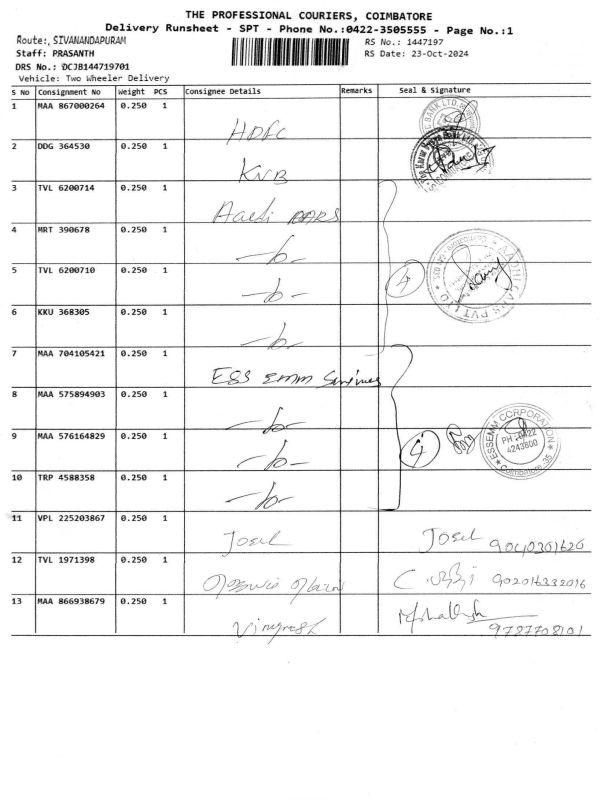 THE PROFESSIONAL COURIERS, COIMBATORE
Delivery Runsheet - SPT - Phone No.:0422-3505555 - Page No.:1
Route:, SIVANANDAPURAM
RS No.: 1447197
Staff: PRASANTH
RS Date: 23-Oct-2024
DRS No.: DCJB144719701
Vehicle: Two Wheeler Delivery
S No Consignment No Weight PCS Consignee Details Remarks Seal & Signature
1 MAA 867000264 0.250 1 HDFC
2 DDG 364530 0.250 1 KVB
3 TVL 6200714 0.250 1
4 MRT 390678 0.250 1
5 TVL 6200710 0.250 1
4
6 KKU 368305 0.250 1
7 MAA 704105421 0.250 1 ESS EMM Services
8 MAA 575894903 0.250 1
9 MAA 576164829 0.250 1
4
ESSEMM CORPORATION
PH : 0422
4243800
Coimbatore-35
10 TRP 4588358 0.250 1
11 VPL 225203867 0.250 1 Josel Josel
12 TVL 1971398 0.250 1
13 MAA 866938679 0.250 1
9787708101